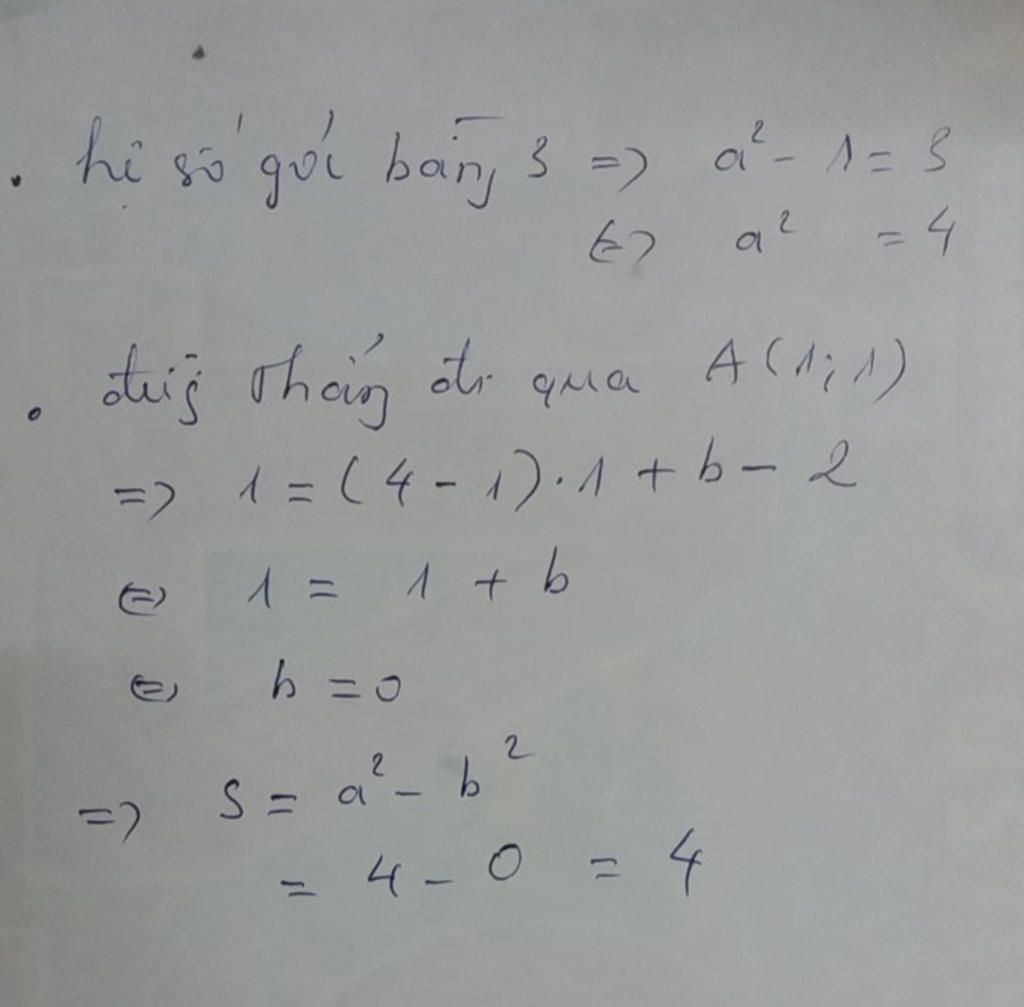 . hệ số góc bằng 3 => a² - 1 = 3
<=> a² = 4
. đường thẳng đi qua A(1;1)
=> 1 = (4 - 1).1 + b - 2
<=> 1 = 1 + b
<=> b = 0
=> S = a² - b²
= 4 - 0 = 4